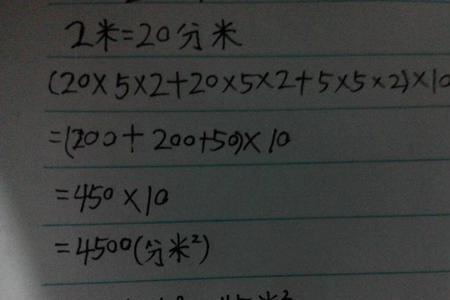 2米=20分米
(20×5×2+20×5×2+5×5×2)×10
=(200+200+50)×10
=450×10
=4500(分米²)